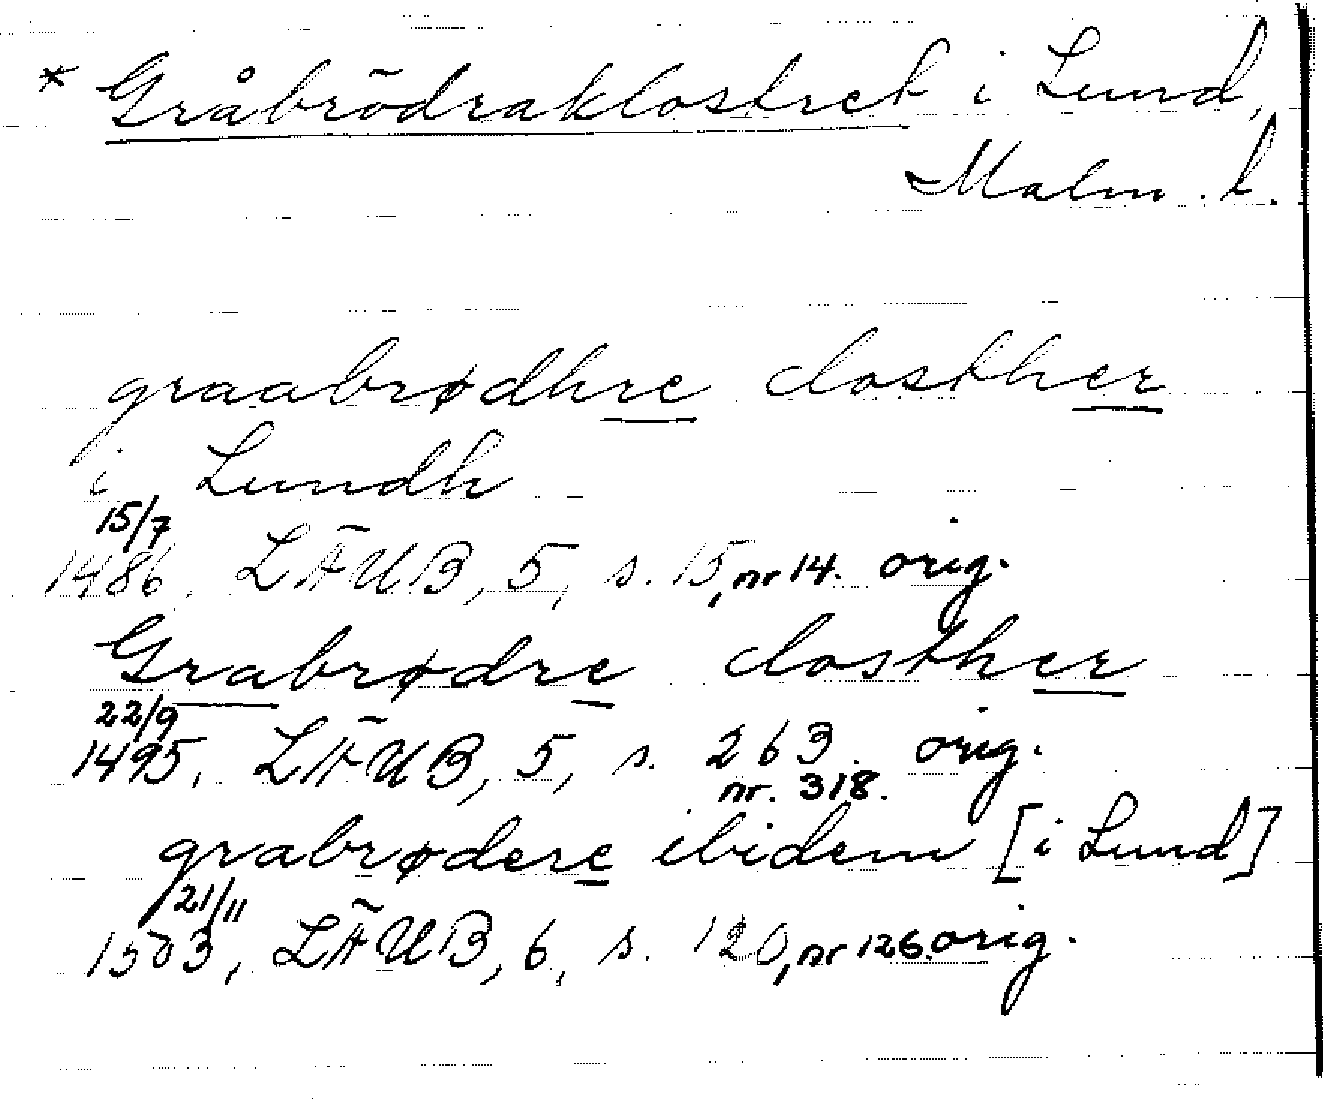 * Gråbrödraklostret i Lund,
Malm. k.
graabrødhre closther
i Lundh
15/7
1486. LÄUB, 5, s. 15, nr 14. orig.
Grabrødre closther
22/9
1495. LÄUB, 5, s. 263. orig.
nr. 318.
grabrødere ibidem [i Lund]
21/11
1503, LÄUB, 6, s. 120, nr 126. orig.